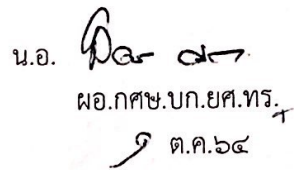 น.อ.
ผอ.กศษ.บก.ยศ.ทร.
๑ ต.ค.๖๔